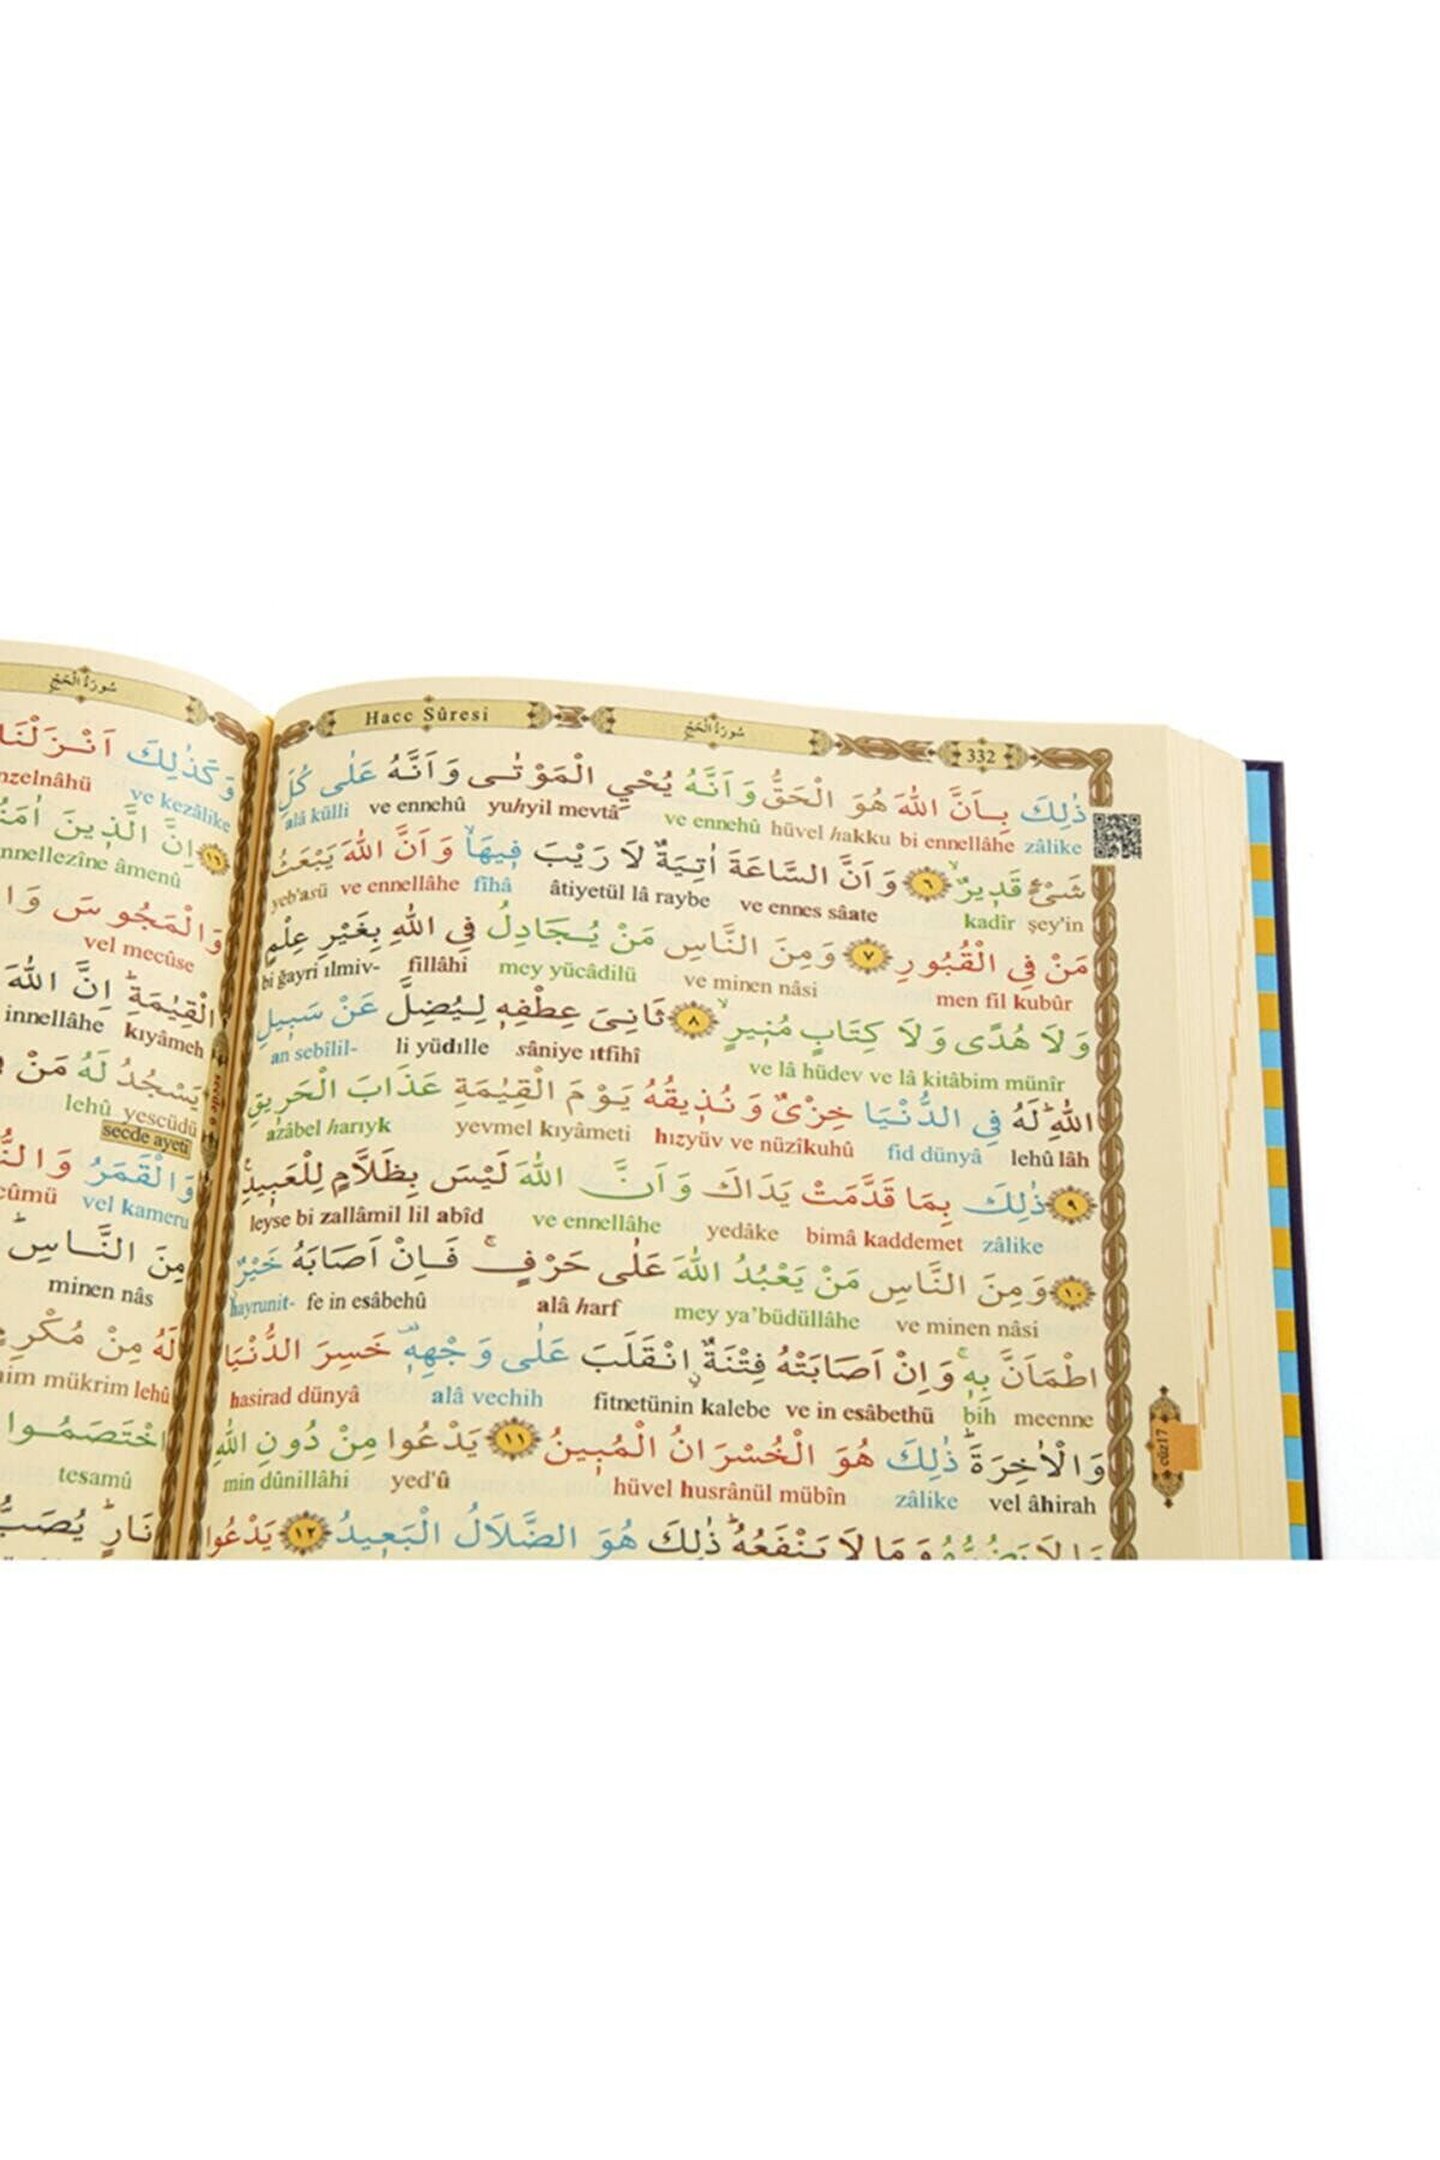 Hacc Sûresi سُورَةُ الْحَجِّ 332
ذٰلِكَ بِاَنَّ اللّٰهَ هُوَ الْحَقُّ وَاَنَّهُ يُحْيِي الْمَوْتٰى وَاَنَّهُ عَلٰى كُلِّ
zâlike bi ennellâhe hüvel hakku ve ennehû yuhyil mevtâ ve ennehû alâ külli
شَيْءٍ قَدِيرٌۙ ﴿٦﴾ وَاَنَّ السَّاعَةَ اٰتِيَةٌ لَا رَيْبَ فِيهَاۙ وَاَنَّ اللّٰهَ يَبْعَثُ
şey'in kadîr ve ennes sâate âtiyetül lâ raybe fîhâ ve ennellâhe yeb'asü
مَنْ فِي الْقُبُورِ ﴿٧﴾ وَمِنَ النَّاسِ مَنْ يُجَادِلُ فِي اللّٰهِ بِغَيْرِ عِلْمٍ
men fil kubûr ve minen nâsi mey yücâdilü fillâhi bi ğayri ılmiv-
وَلَا هُدًى وَلَا كِتَابٍ مُنِيرٍۙ ﴿٨﴾ ثَانِيَ عِطْفِهِ لِيُضِلَّ عَنْ سَبِيلِ
ve lâ hüdev ve lâ kitâbim münîr sâniye ıtfihî li yüdılle an sebîlil-
اللّٰهِؕ لَهُ فِي الدُّنْيَا خِزْيٌ وَنُذِيقُهُ يَوْمَ الْقِيٰمَةِ عَذَابَ الْحَرِيقِ
lâh lehû fid dünyâ hızyüv ve nüzîkuhû yevmel kıyâmeti azâbel harıyk
﴿٩﴾ ذٰلِكَ بِمَا قَدَّمَتْ يَدَاكَ وَاَنَّ اللّٰهَ لَيْسَ بِظَلَّامٍ لِلْعَبِيدِ۟
zâlike bimâ kaddemet yedâke ve ennellâhe leyse bi zallâmil lil abîd
﴿١٠﴾ وَمِنَ النَّاسِ مَنْ يَعْبُدُ اللّٰهَ عَلٰى حَرْفٍۚ فَاِنْ اَصَابَهُ خَيْرٌ
ve minen nâsi mey ya'büdüllâhe alâ harf fe in esâbehû hayrunit-
اطْمَاَنَّ بِهِۚ وَاِنْ اَصَابَتْهُ فِتْنَةٌ انْقَلَبَ عَلٰى وَجْهِهِ خَسِرَ الدُّنْيَا
meenne bih ve in esâbethü fitnetünin kalebe alâ vechih hasirad dünyâ
وَالْاٰخِرَةَؕ ذٰلِكَ هُوَ الْخُسْرَانُ الْمُبِينُ ﴿١١﴾ يَدْعُوا مِنْ دُونِ اللّٰهِ
vel âhirah zâlike hüvel husrânül mübîn yed'û min dûnillâhi
وَمَا لَا يَنْفَعُهُؕ ذٰلِكَ هُوَ الضَّلَالُ الْبَعِيدُ ﴿١٢﴾ يَدْعُوا
cüz17
سُورَةُ الْحَجِّ
وَكَذٰلِكَ اَنْزَلْنَا
ve kezâlike
﴿١٦﴾ اِنَّ الَّذِينَ
innellezîne âmenû
وَالْمَجُوسَ
vel mecûse
الْقِيٰمَةِؕ اِنَّ اللّٰهَ
kıyâmeh innellâhe
يَسْجُدُ لَهُ مَنْ
yescüdü lehû
secde ayeti
وَالْقَمَرُ
vel kameru
مِنَ النَّاسِؕ
minen nâs
لَهُ مِنْ
lehû mükrim
اخْتَصَمُوا
tesamû
نَارٍؕ